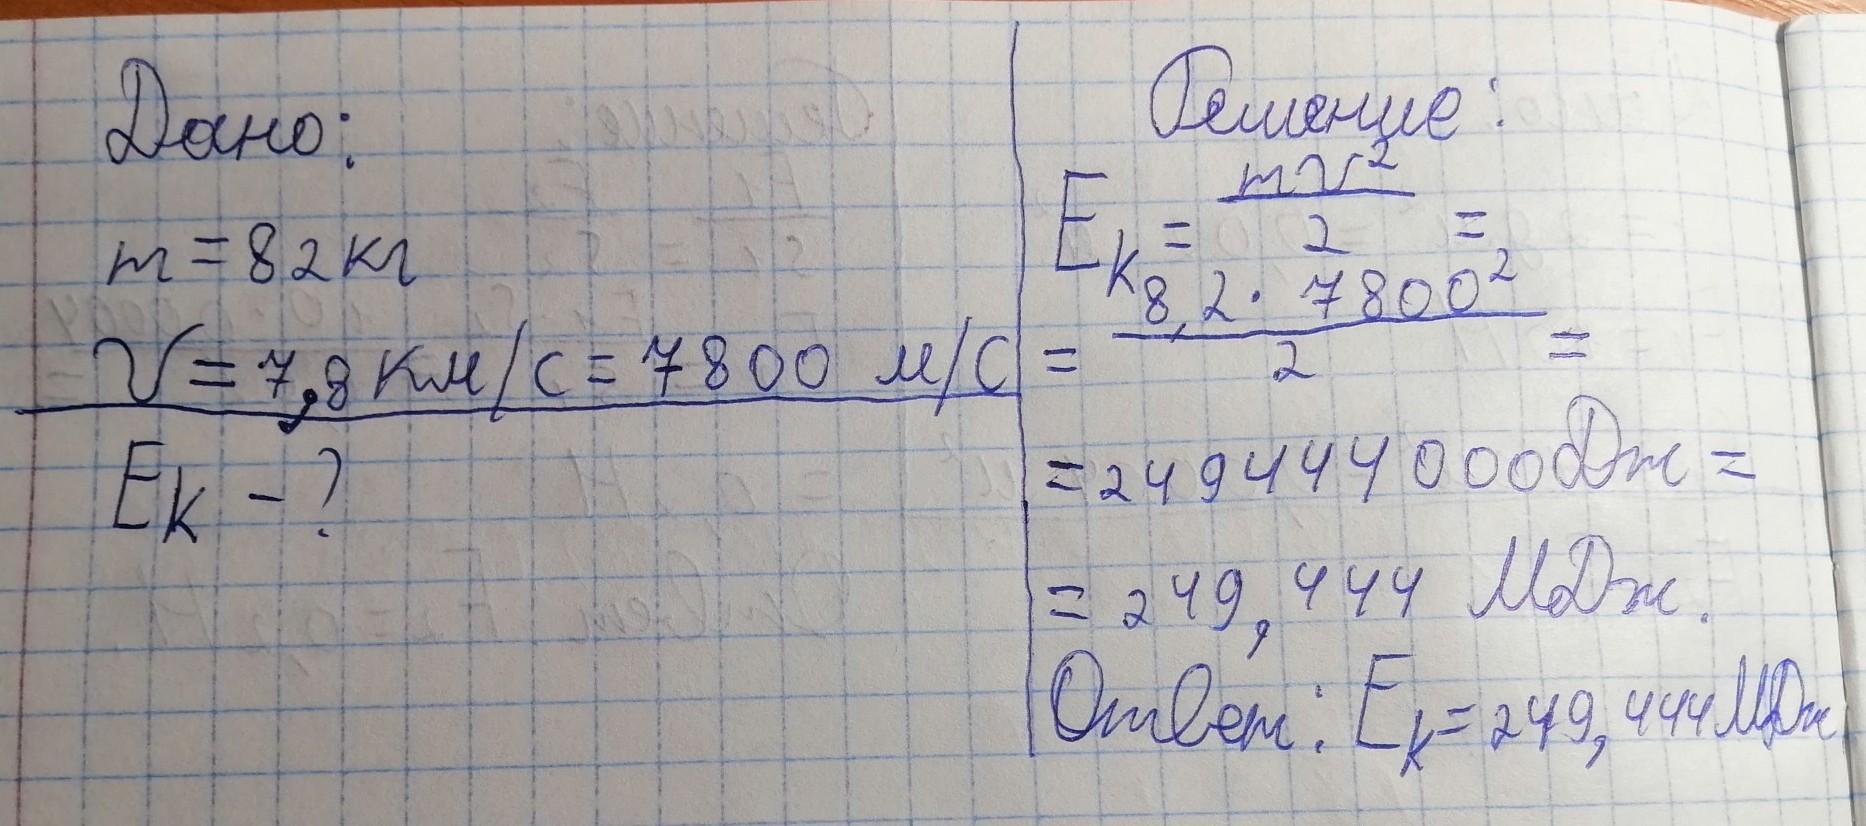 Дано:
m = 82 кг
V = 7,8 км/с = 7800 м/с
Eк - ?
Решение:
Eк = mv²/2 =
= 8,2 · 7800²/2 =
= 249444000 Дж =
= 249,444 МДж.
Ответ: Eк = 249,444 МДж